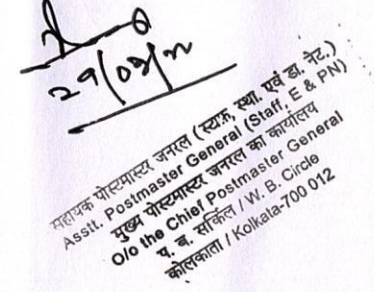 29/03/22
सहायक पोस्टमास्टर जनरल (स्टाफ़, स्था. एवं डा. नेट.)
Asstt. Postmaster General (Staff, E & PN)
मुख्य पोस्टमास्टर जनरल का कार्यालय
O/o the Chief Postmaster General
प. बं. सर्किल / W. B. Circle
कोलकाता / Kolkata-700 012